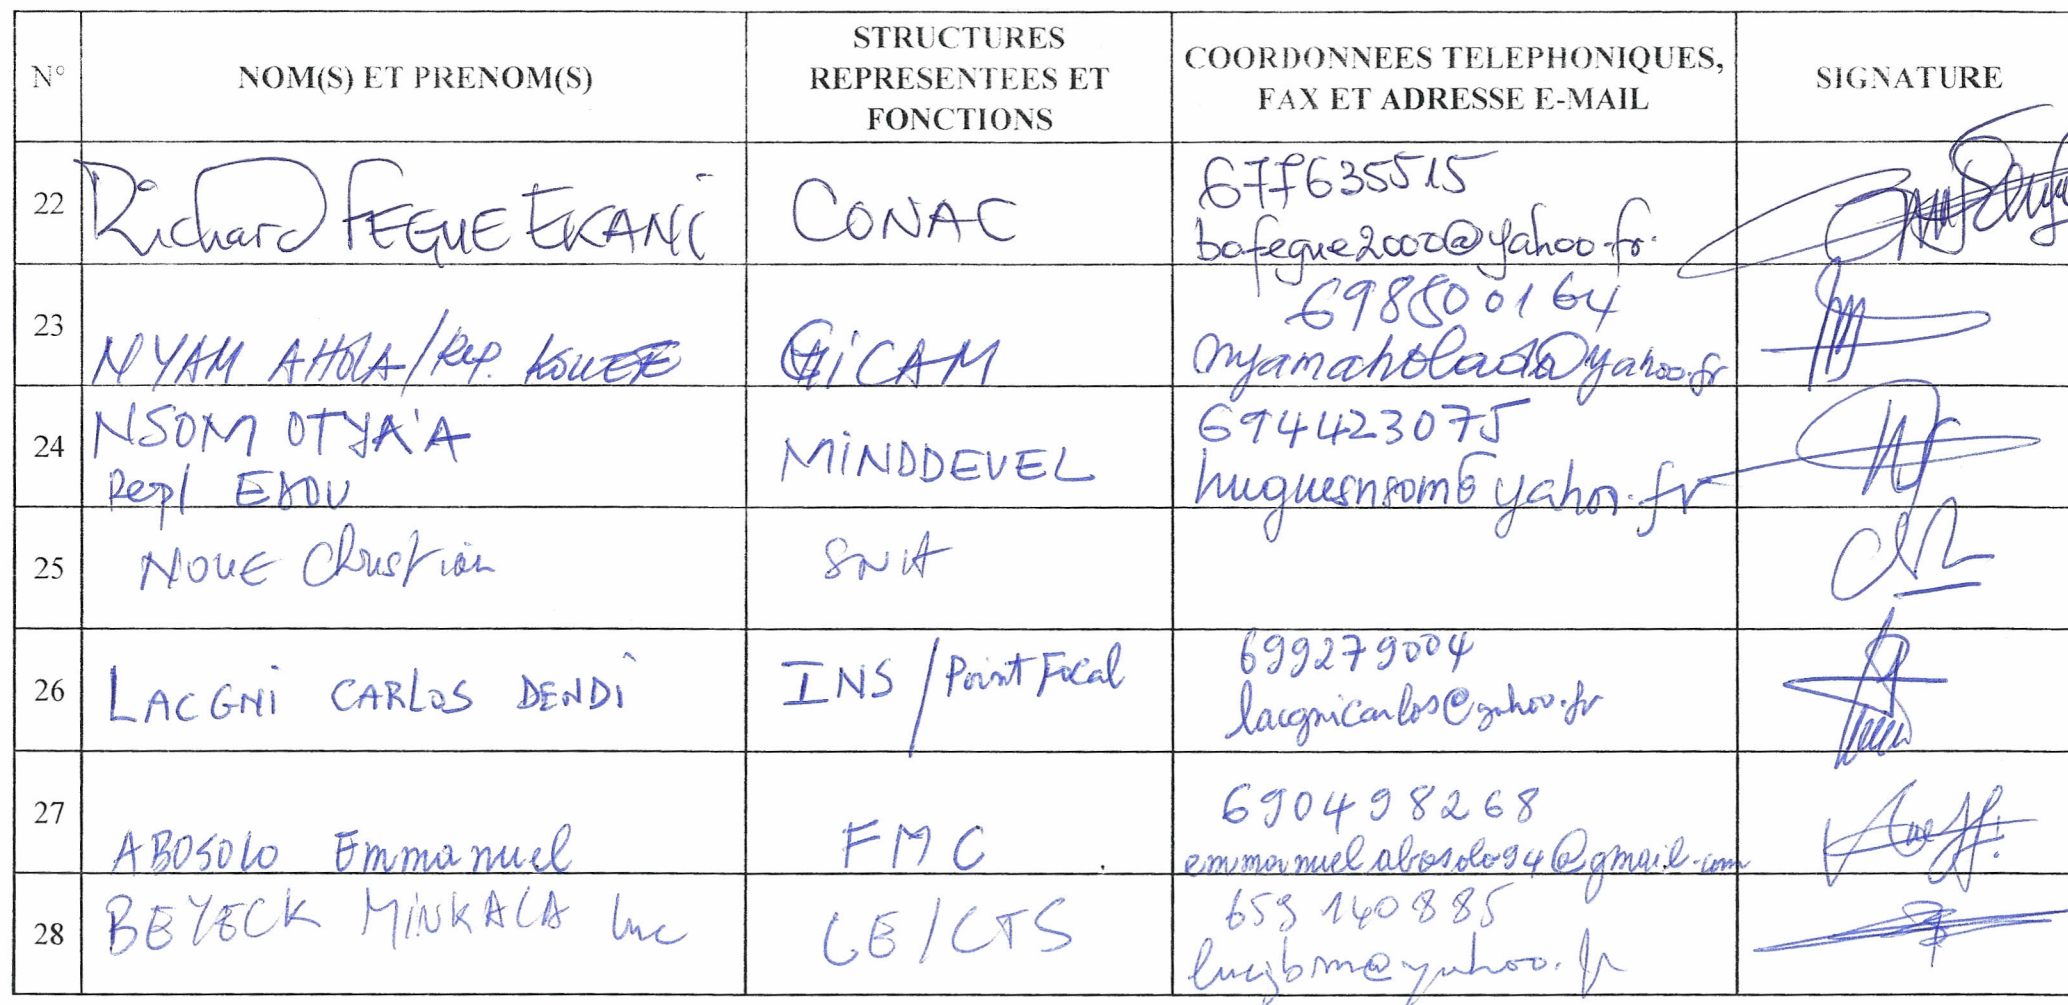 N°
NOM(S) ET PRENOM(S)
STRUCTURES
REPRESENTEES ET
FONCTIONS
COORDONNEES TELEPHONIQUES,
FAX ET ADRESSE E-MAIL
SIGNATURE
22
Richard FEGUE EKANI
CONAC
677635515
bofegue2000@yahoo.fr
23
NYAM AHOLA/Rep.
GICAM
698500164
24
NSOM OTYA'A
Repl
MINDDEVEL
694423075
huguesnsom6yahoo.fr
25
NOUE Christian
26
LACGNI CARLOS DENDI
INS / Point Focal
699279004
lacgnicarlos@yahoo.fr
27
ABOSOLO Emmanuel
FMC
690498268
emmanuelabosolo94@gmail.com
28
BEYECK MINKALA Luc
CE/CTS
659 140885